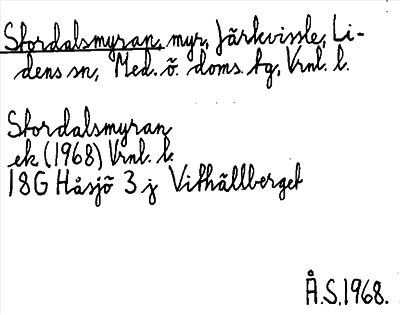 Stordalsmyran, myr, Järkvissle, Li-
dens sn, Med. ö. doms. tg, Vrnl. l.
Stordalsmyran
ek (1968) Vrnl. l.
18G Håsjö 3 j Vithällberget
Å.S.1968.